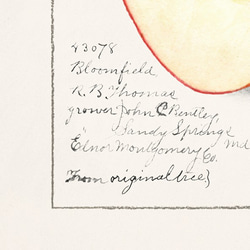 43078
Bloomfield
R. B. Thomas
grower John C Bentley
Sandy Springs Md
Montgomery Co.
From original tree}